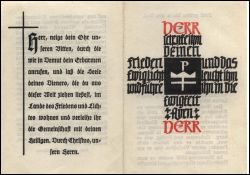 Herr, neige dein Ohr un-
seren Bitten, durch die
wir in Demut dein Erbarmen
anrufen, und laß die Seele
deines Dieners, die du aus
dieser Welt ziehen ließest, im
Lande des Friedens und Lich-
tes wohnen und verleihe ihr
die Gemeinschaft mit deinen
Heiligen. Durch Christus, un-
sern Herrn.
HERR
ihm
Frieden und das
Ewiglicht leucht ihm
und führe ihn in die
Ewigkeit
HERR